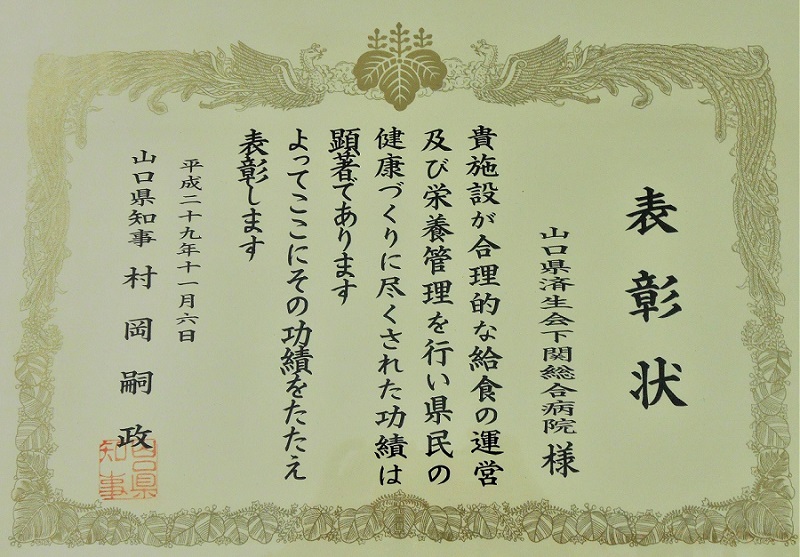 表彰状
山口県済生会下関総合病院 様
貴施設が合理的な給食の運営
及び栄養管理を行い県民の
健康づくりに尽くされた功績は
顕著であります
よってここにその功績をたたえ
表彰します
平成二十九年十一月六日
山口県知事 村岡嗣政
山口県
知事